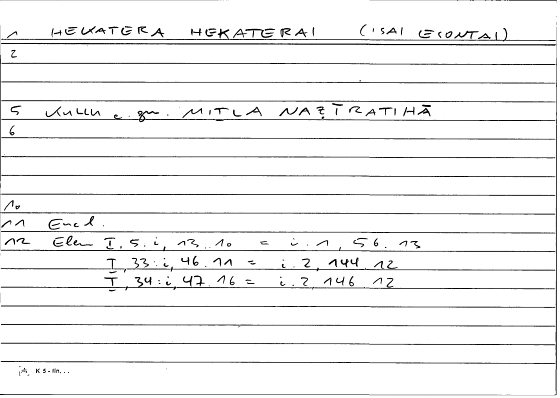 1 HEKATERA HEKATERAI (ISAI ESONTAI)
2
5 Kullu MITLA NAẒĪRATIHĀ
6
10
11 Eucl.
12 Elem I, 5 : i, 13.10 = i.1, 56.13
I, 33 : i, 46.11 = i.2, 144.12
I, 34 : i, 47.16 = i.2, 146.12